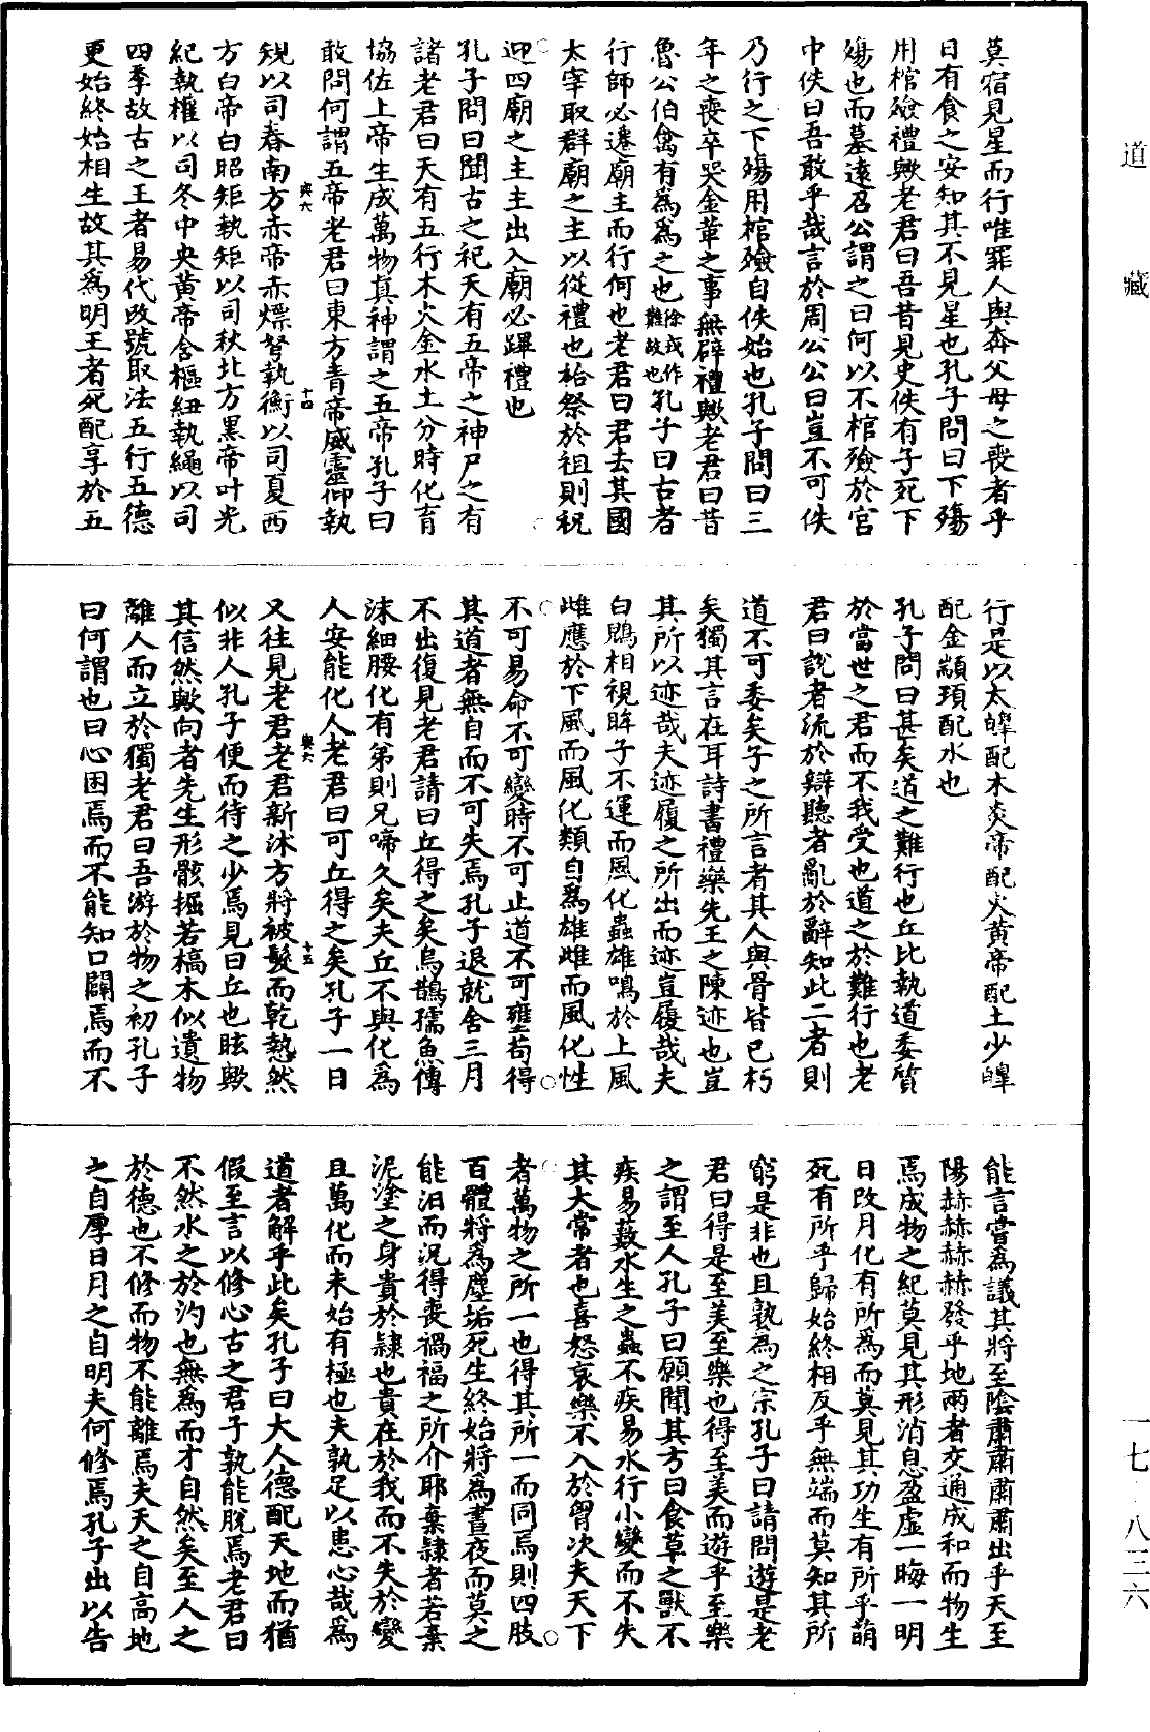 道藏
莫宿見星而行唯罪人與奔父母之喪者乎
日有食之安知其不見星也孔子問曰下殤
用棺殮禮歟老君曰吾昔見史佚有子死下
殤也而墓遠召公謂之曰何以不棺殮於宮
中佚曰吾敢乎哉言於周公公曰豈不可佚
乃行之下殤用棺殮自佚始也孔子問曰三
年之喪卒哭金革之事無辟禮歟老君曰昔
魯公伯禽有為為之也徐戎作難故也孔子曰古者
行師必遷廟主而行何也老君曰君去其國
太宰取群廟之主以從禮也祫祭於祖則祝
迎四廟之主主出入廟必蹕禮也
孔子問曰聞古之祀天有五帝之神尸之有
諸老君曰天有五行木火金水土分時化育
協佐上帝生成萬物真神謂之五帝孔子曰
敢問何謂五帝老君曰東方青帝威靈仰執
與六 十四
規以司春南方赤帝赤熛弩執衡以司夏西
方白帝白昭矩執矩以司秋北方黑帝叶光
紀執權以司冬中央黃帝含樞紐執繩以司
四季故古之王者易代改號取法五行五德
更始終始相生故其為明王者死配享於五
行是以太皥配木炎帝配火黃帝配土少皥
配金顓頊配水也
孔子問曰甚矣道之難行也丘比執道委質
於當世之君而不我受也道之於難行也老
君曰說者流於辯聽者亂於辭知此二者則
道不可委矣子之所言者其人與骨皆已朽
矣獨其言在耳詩書禮樂先王之陳迹也豈
其所以迹哉夫迹履之所出而迹豈履哉夫
白鶂相視眸子不運而風化蟲雄鳴於上風
雌應於下風而風化類自為雄雌而風化性
不可易命不可變時不可止道不可壅苟得
其道者無自而不可失焉孔子退就舍三月
不出復見老君請曰丘得之矣烏鵲孺魚傳
沫細腰化有弟則兄啼久矣夫丘不與化為
人安能化人老君曰可丘得之矣孔子一日
與六 十五
又往見老君老君新沐方將被髮而乾熱然
似非人孔子便而待之少焉見曰丘也眩歟
其信然歟向者先生形骸掘若槁木似遺物
離人而立於獨老君曰吾游於物之初孔子
曰何謂也曰心困焉而不能知口闢焉而不
能言嘗為議其將至陰肅肅肅肅出乎天至
陽赫赫赫赫發乎地兩者交通成和而物生
焉成物之紀莫見其形消息盈虛一晦一明
日改月化有所為而莫見其功生有所乎萌
死有所乎歸始終相反乎無端而莫知其所
窮是非也且孰為之宗孔子曰請問遊是老
君曰得是至美至樂也得至美而遊乎至樂
之謂至人孔子曰願聞其方曰食草之獸不
疾易藪水生之蟲不疾易水行小變而不失
其大常者也喜怒哀樂不入於胷次夫天下
者萬物之所一也得其所一而同焉則四肢
百體將為塵垢死生終始將為晝夜而莫之
能汩而況得喪禍福之所介耶棄隸者若棄
泥塗之身貴於隸也貴在於我而不失於變
且萬化而未始有極也夫孰足以患心哉為
道者解乎此矣孔子曰大人德配天地而猶
假至言以修心古之君子孰能脫焉老君曰
不然水之於汋也無為而才自然矣至人之
於德也不修而物不能離焉夫天之自高地
之自厚日月之自明夫何修焉孔子出以告
一七·八三六